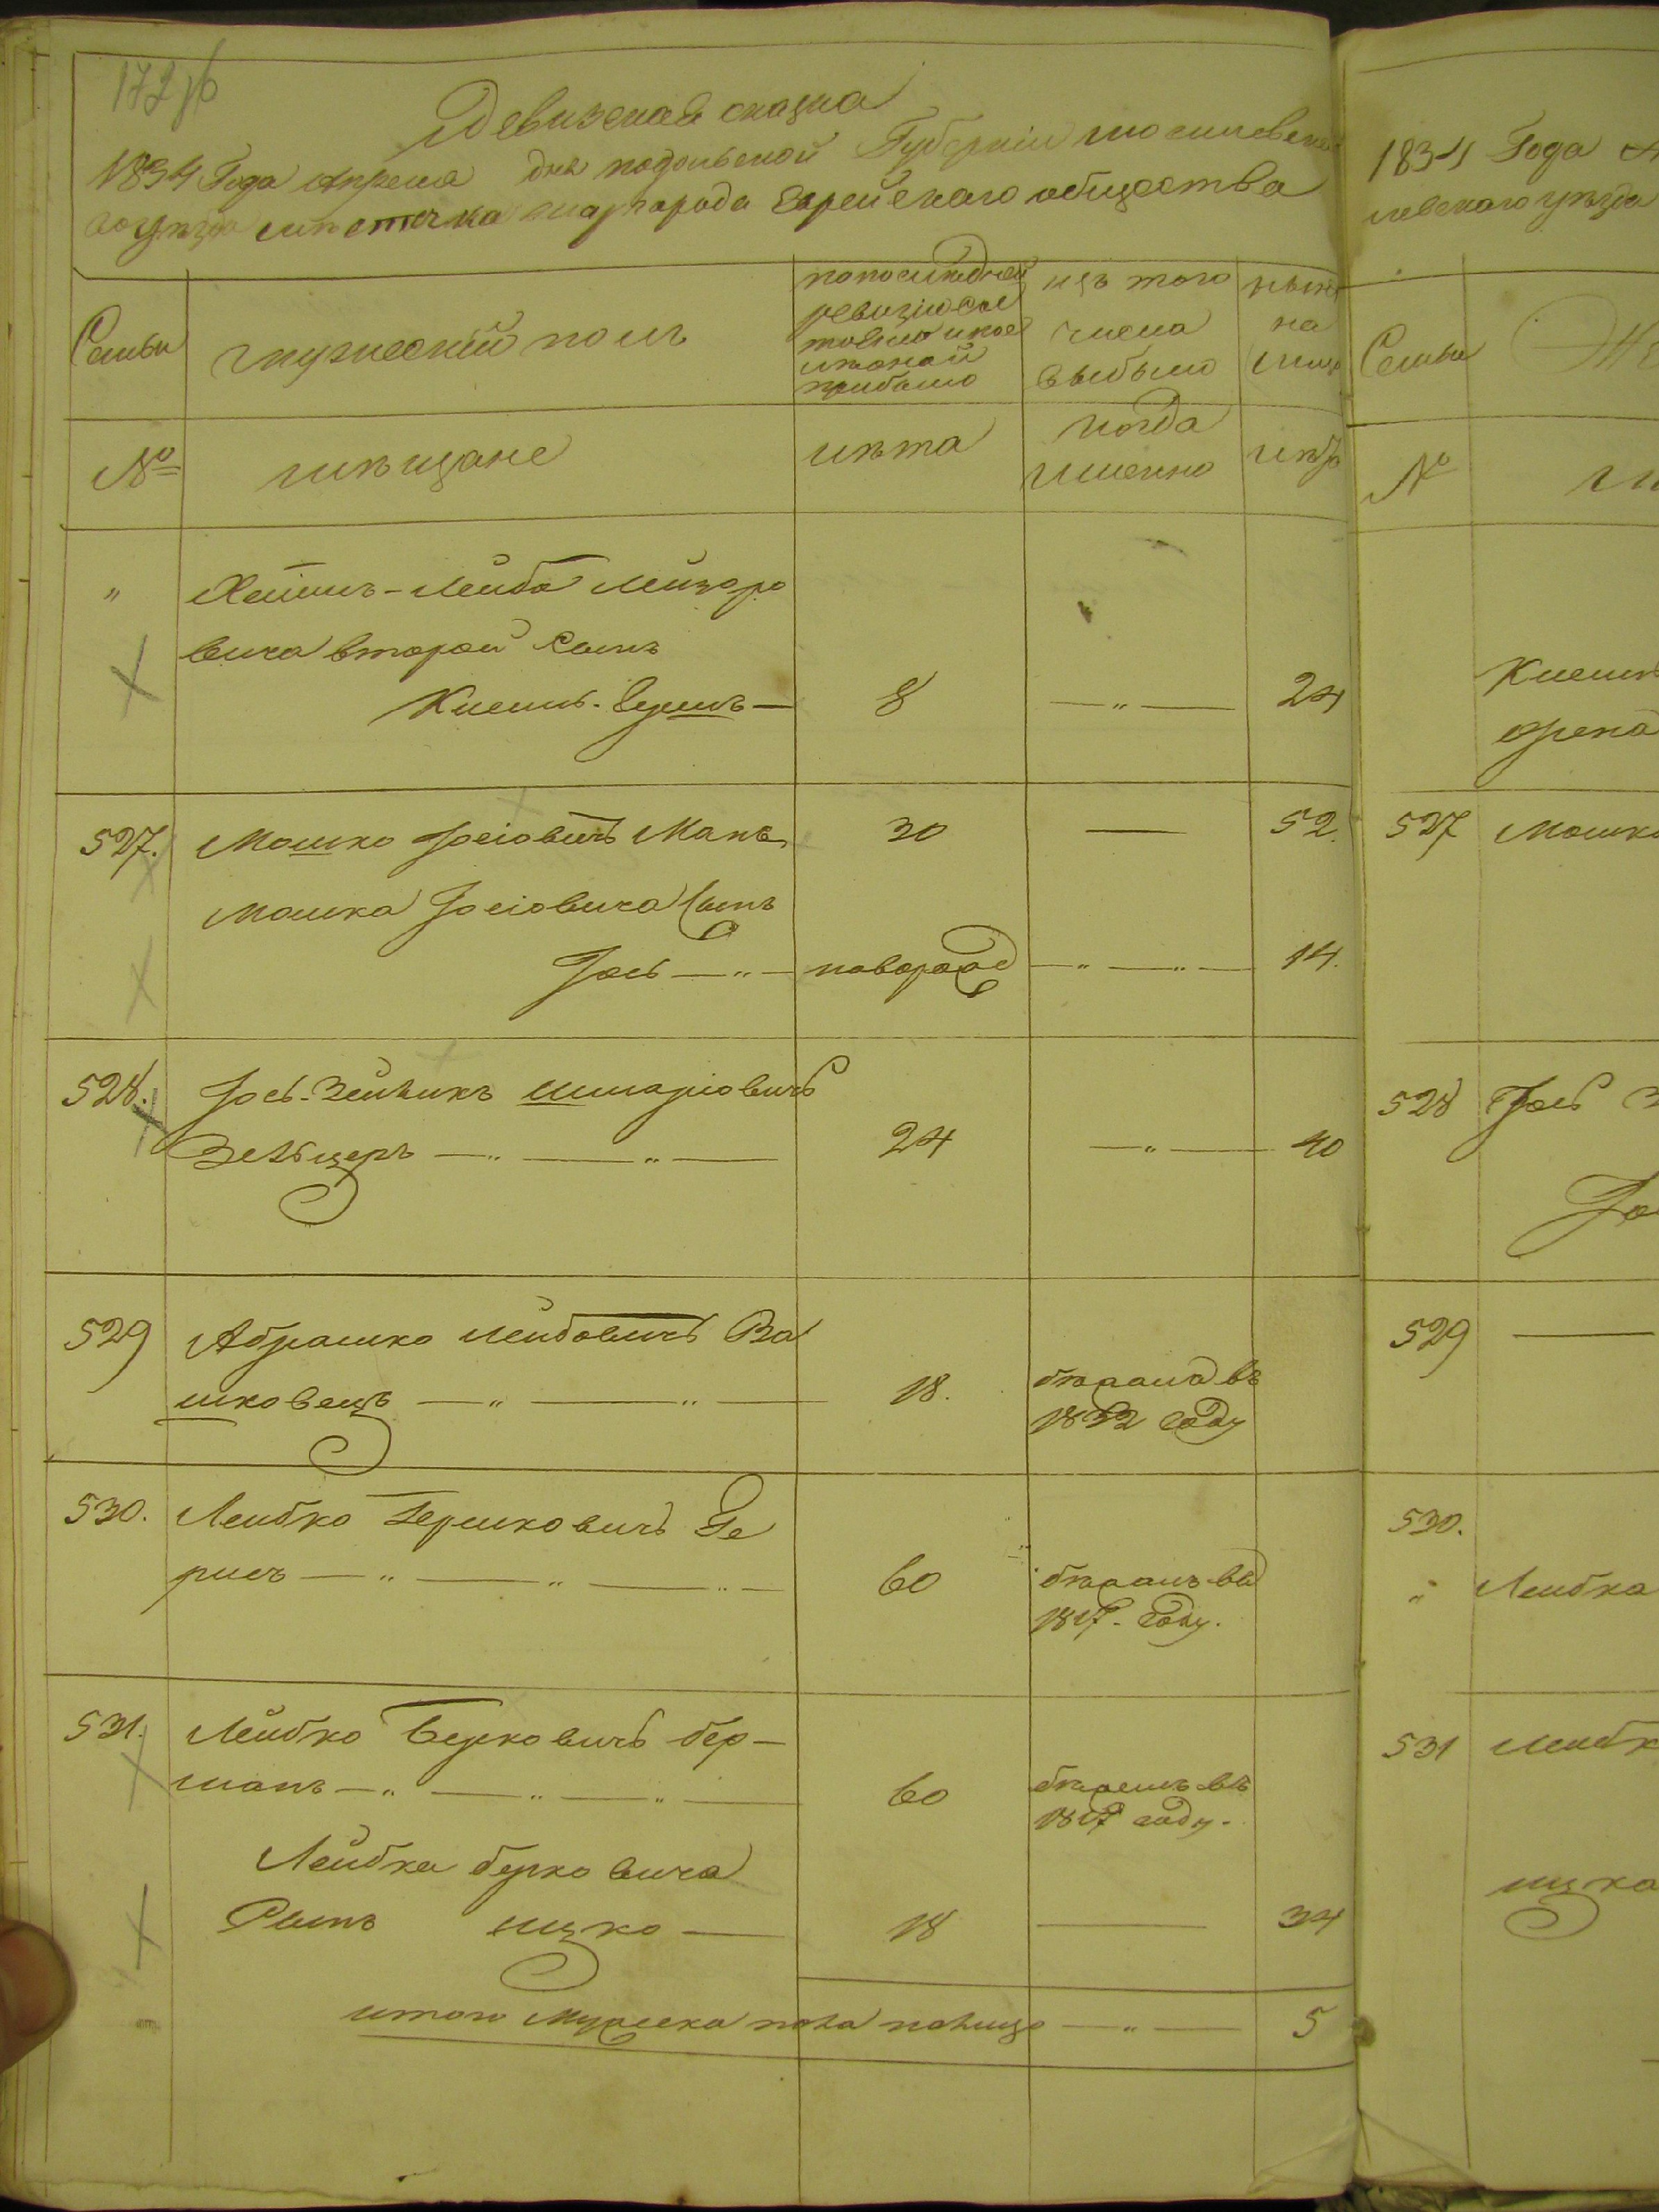 172 об
Ревизская сказка
1834 Года Апреля дня подольской Губернии могилевска
го уезда местечка шаргорода Еврейского общества
Семьи
мужеский полъ
по последней
ревизіи со
стояло и после
оной
прибыло
изъ того
числа
выбыло
ныне
на
лицо
№
мещане
лета
когда
именно
летъ
"
Хаимъ-Лейба Лейзоро
вича второй Сынъ
8
— " —
24
527.
Мошко Іосіовичъ
30
—
52.
Мошка Іосіовича Сынъ
Іось — " —
новорожд
— " — " —
14.
528.
Іось-Зейликъ Шмаріовичъ
Зельцеръ — " — " —
24
— " —
40
529
Абрашко Лейбовичъ Ва
шковецъ — " — " —
18.
въ
1832 году
530.
Лейбко Гершковичъ
— " — " — " —
60
въ
1817. году.
531.
Лейбко Берковичъ бер-
манъ — " — " — " —
60
въ
1817 году.
Лейбка берковича
Сынъ ицко —
18
—
34
итого Мужеска пола налицо — " —
5
1834 Года А
левского уезда
Семьи
Же
№
ме
527
Мошк
528
Іось З
Іо
529
—
530.
"
Лейбка
531
Лейбк
ицка